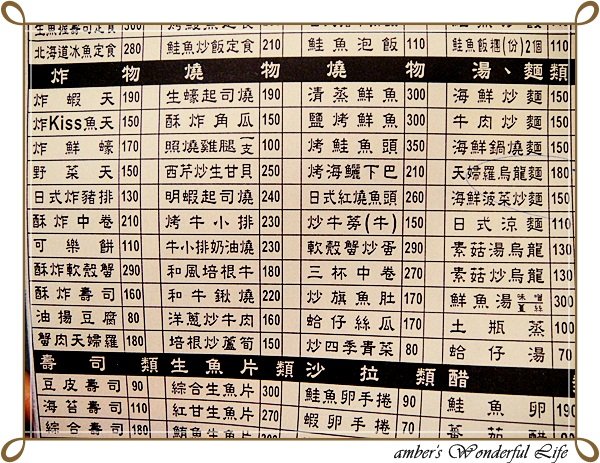 生魚握壽司定食 300 鮭魚泡飯
北海道冰魚定食 280 鮭魚炒飯定食 210 鮭魚泡飯 110 鮭魚飯糰(份)2個 110
炸物 燒物 燒物 湯、麵類
炸蝦天 190 生蠔起司燒 190 清蒸鮮魚 300 海鮮炒麵 150
炸Kiss魚天 150 酥炸角瓜 150 鹽烤鮮魚 300 牛肉炒麵 150
炸鮮蠔 170 照燒雞腿一支 100 烤鮭魚頭 350 海鮮鍋燒麵 150
野菜天 150 西芹炒生甘貝 250 烤海鱺下巴 210 天婦羅烏龍麵 180
日式炸豬排 130 明蝦起司燒 240 日式紅燒魚頭 260 海鮮菠菜炒麵 150
酥炸中卷 210 烤牛小排 230 炒牛蒡(牛) 150 日式涼麵 110
可樂餅 110 牛小排奶油燒 230 軟殼蟹炒蛋 290 素菇湯烏龍 130
酥炸軟殼蟹 290 和風培根牛 180 三杯中卷 270 素菇炒烏龍 130
酥炸壽司 160 和牛鍬燒 220 炒旗魚肚 170 鮮魚湯 味噌 薑 300
油揚豆腐 80 洋蔥炒牛肉 160 蛤仔絲瓜 170 土瓶蒸 100
蟹肉天婦羅 180 培根炒蘆筍 150 炒四季青菜 80 蛤仔湯 70
壽司類 生魚片類 沙拉類 醋
豆皮壽司 90 綜合生魚片 300 鮭魚卵手捲 90 鮭魚卵 190
海苔壽司 110 紅甘生魚片 270 蝦卵手捲 70 蕃茄醋
綜合壽司 180 鮪魚生魚片 300
amber's Wonderful Life